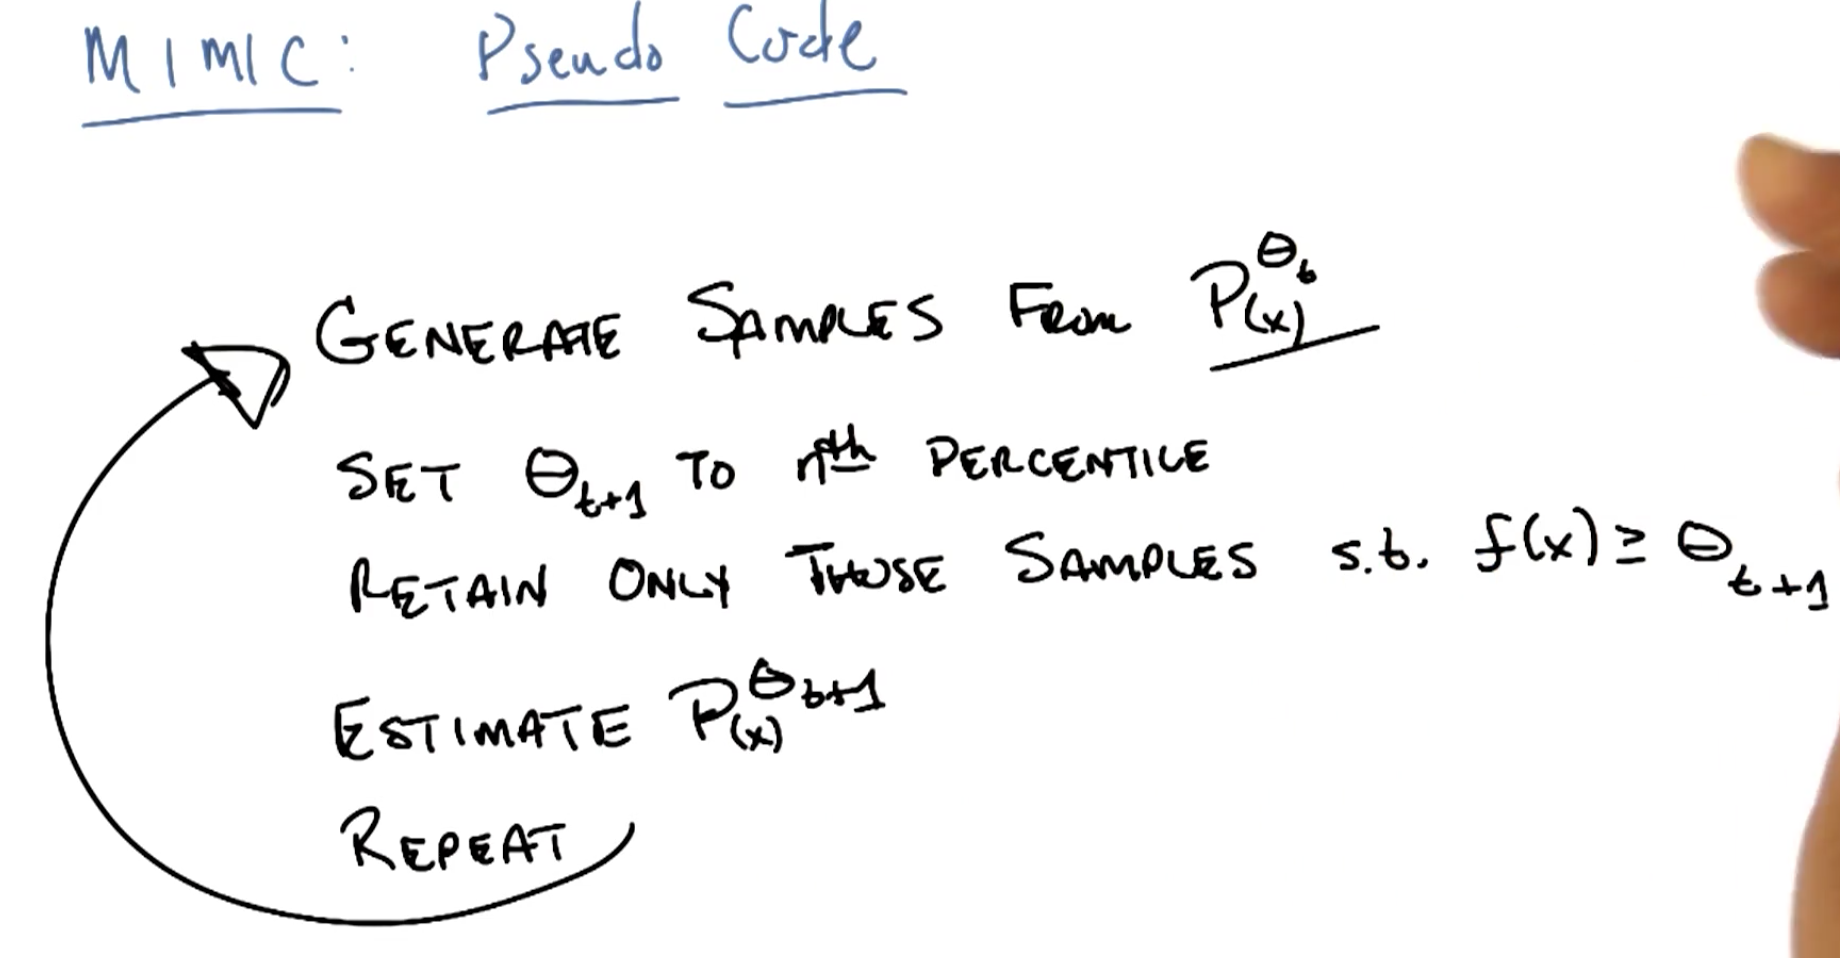 MIMIC: Pseudo Code
GENERATE SAMPLES FROM P^θ_t(x)
SET θ_t+1 TO nth PERCENTILE
RETAIN ONLY THOSE SAMPLES s.t. f(x) ≥ θ_t+1
ESTIMATE P^θ_t+1(x)
REPEAT